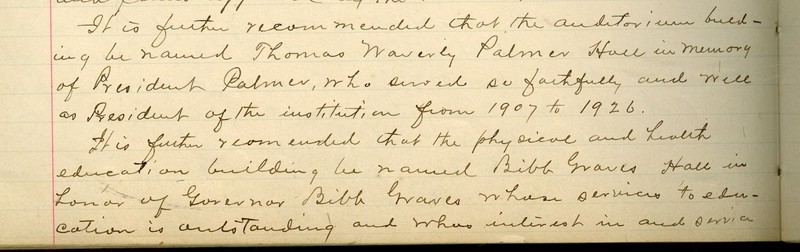 It is further recommended that the auditorium build-
ing be named Thomas Waverly Palmer Hall in memory
of President Palmer, who served so faithfully and well
as President of the institution from 1907 to 1926.
It is further recommended that the physical and health
education building be named Bibb Graves Hall in
honor of Governor Bibb Graves whose services to edu-
cation is outstanding and whos interest in and service